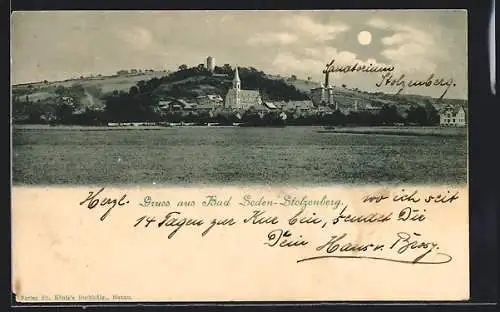 Sanatorium
Stolzenberg.
Herzl. Gruss aus Bad Soden-Stolzenberg. wo ich seit
14 Tagen zur Kur bin, sendet Dir
Dein Hans v. Brosy.
Verlag Fr. König's Buchhdlg., Hanau.